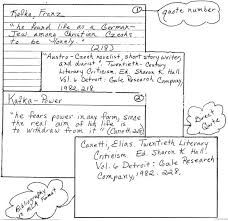 Kafka, Franz
1
quote number
"he found life as a German-
Jew among Christian Czechs
to be "lonely."
(218)
"Austro-Czech novelist, short story writer,
and diarist". Twentieth-Century
Literary Criticism. Ed. Sharon K. Hall.
Vol. 6 Detroit: Gale Research Company,
1982. 218.
Kafka - Power
2
"he fears power in any form, since
the real aim of his life is
to withdraw from it" (Canetti 228)
Direct
Quote
Canetti, Elias. Twentieth Literary
Criticism. Ed. Sharon K. Hall.
Vol. 6 Detroit: Gale Research
Company, 1982. 228.
Bibliography